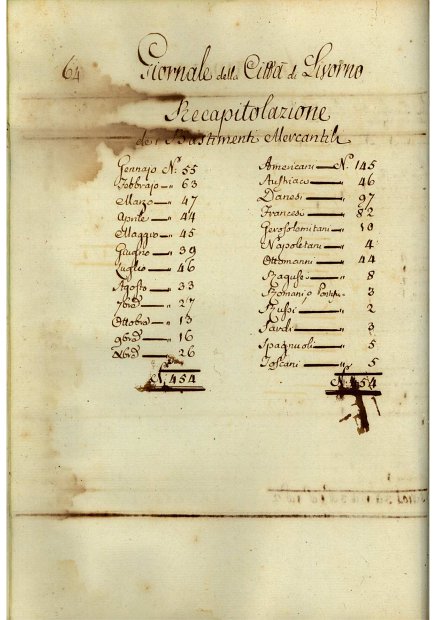 64
Giornale della Città di Livorno
Recapitolazione
de i Bastimenti Mercantili
Gennajo N.° 55
Febbrajo — " 63
Marzo — " 47
Aprile — " 44
Maggio — " 45
Giugno — " 39
Luglio — " 46
Agosto — " 33
7bre — " 27
Ottobre — " 13
9bre — " 16
Xbre — " 26
N. 454
Americani — N.° 145
Austriaci — " 46
Danesi — " 97
Francesi — " 82
Gerosolomitani — " 10
Napoletani — " 4
Ottomanni — " 44
Ragusei — " 8
Romani o Pontifi. " 3
Russi — " 2
Sardi — " 3
Spagnuoli — " 5
Toscani — " 5
N. 454